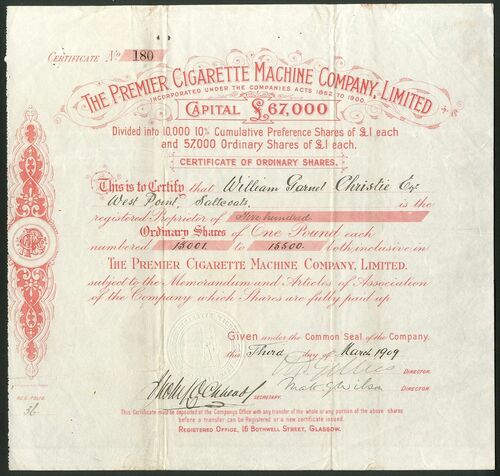 CERTIFICATE No 180
THE PREMIER CIGARETTE MACHINE COMPANY, LIMITED
INCORPORATED UNDER THE COMPANIES ACTS 1862 TO 1900.
CAPITAL £67,000
Divided into 10,000 10% Cumulative Preference Shares of £1 each
and 57,000 Ordinary Shares of £1 each.
CERTIFICATE OF ORDINARY SHARES.
This is to Certify that William Garnet Christie Esq
West Point, Saltcoats, is the
registered Proprietor of Five hundred
Ordinary Shares of One Pound each
numbered 15001 to 15500 both inclusive in
THE PREMIER CIGARETTE MACHINE COMPANY, LIMITED.
subject to the Memorandum and Articles of Association
of the Company which Shares are fully paid up
Given under the Common Seal of the Company.
this Third day of March 1909
DIRECTOR.
REG. FOLIO
56
SECRETARY.
DIRECTOR.
This Certificate must be deposited at the Companys Office with any transfer of the whole or any portion of the above shares
before a transfer can be Registered or a new certificate issued.
REGISTERED OFFICE, 16 BOTHWELL STREET, GLASGOW.